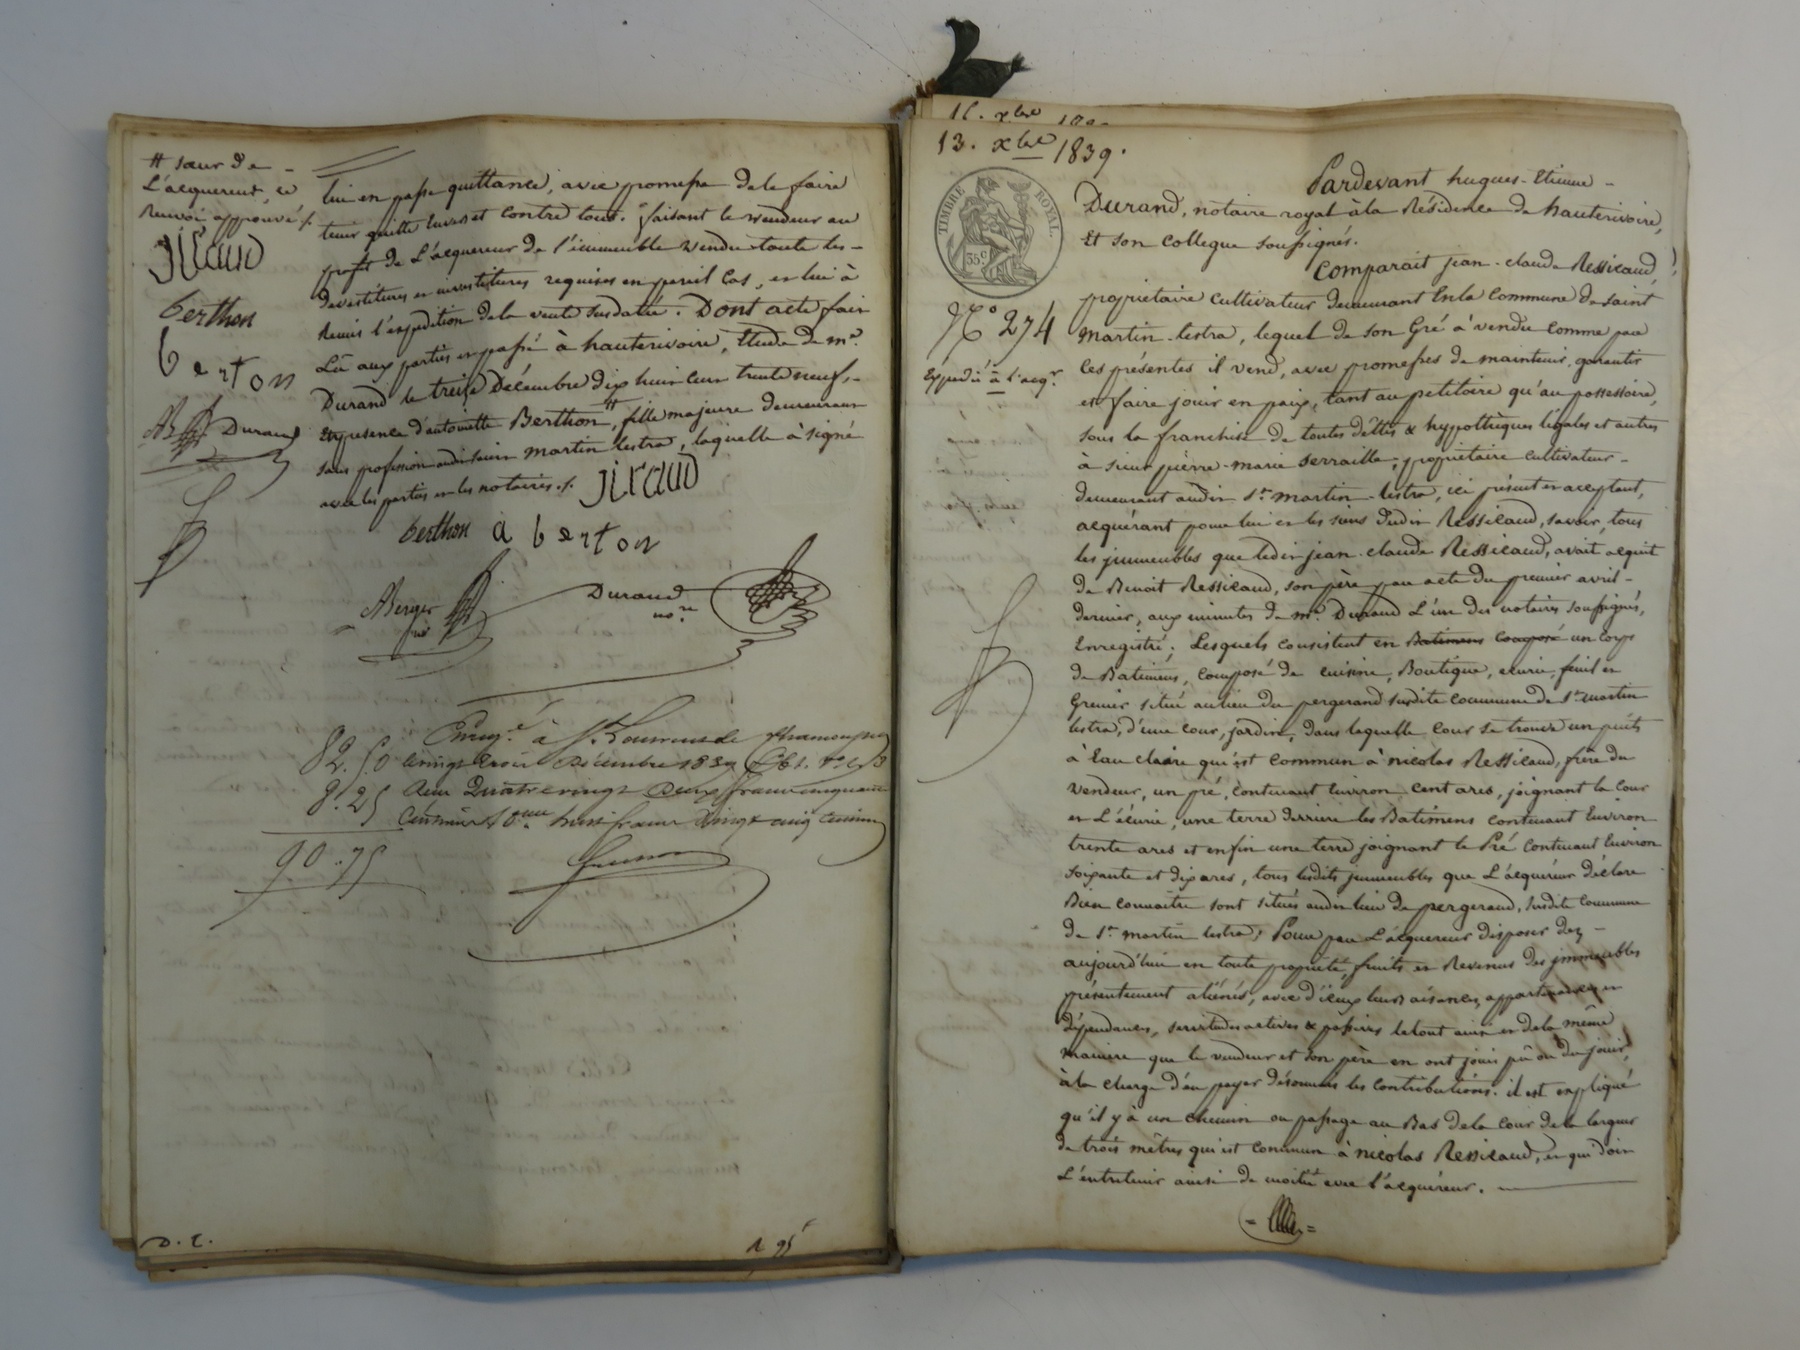 # sœur de -
L'acquereur, ce
Renvoi approuvé /.
Jiraud
berthon
berton
Durand
lui en passe quittance, avec promesse de le faire
tenir quitte envers et contre tous. faisant le vendeur au
profit de L'acquereur de l'immeuble vendu toute les -
devestitures en investitures requises en pareil cas, en lui à
Remis l'expedition de la vente susdatée. Dont acte fait
Lû aux parties en passé à hauterivoire, Etude de me.
Durand le treize Décembre dix huit cent trente neuf, -
En presence d'antoinette Berthon #, fille majeure demeurant
sans profession audit saint martin lestra, laquelle à signé
avec les parties en les notaires ./. Jiraud
berthon a berton
ABerger
Durand
nore
82. 50
8. 25
90. 75
Enreg.é à St. Laurent de Chamousset
vingt trois Décembre 1839
Reçu Quatrevingt Deux francs cinquante
Centimes 10eme huit francs vingt cinq centimes
D. C.
15. xbre
13. xbre 1839.
TIMBRE ROYAL.
35 c
No 274
Expedié à l'acqr.
Pardevant hugues-Etienne -
Durand, notaire royal à la Résidence de hauterivoire,
Et son collegue soussignés.
Comparait jean-claude Ressicaud,
propriétaire cultivateur demeurant En la Commune de saint
Martin-lestra, lequel de son Gré à vendu comme par
ces présentes il vend, avec promesses de maintenir, garantir
et faire jouir en paix, tant au petitoire qu'au possessoire,
sous la franchise de toutes déttes & hypothèques légales et autres
à sieur pièrre-marie serraille, propriétaire cultivateur -
demeurant audit St. martin-lestra, ici présent et acceptant,
acquérant pour lui et les siens dudit Ressicaud, savoir, tous
les jmmeubles que ledit jean-claude Ressicaud, avait acquit
de Benoit Ressicaud, son père par acte du premier avril -
dernier, aux minutes de me. Durand L'un des notaires soussignés,
Enregistré; Lesquels consistent en Batimens composé un corps
de Batimens, composé de cuisine, Boutique, écurie, fenil en
Grenier situé au lieu du pergerand susdite commune de St. martin
lestra, d'une cour, jardin, dans laquelle cour se trouve un puits
à Eau claire qui est commun à nicolas Ressicaud, frère du
vendeur, un pré, contenant Environ cent ares, joignant la Cour
en L'écurie, une terre derriere les Batimens contenant Environ
trente ares et enfin une terre joignant le Pré contenant Environ
soixante et dix ares, tous lesdits jmmeubles que L'acquéreur déclare
Bien connaitre sont situés audit lieu de pergerand, susdite commune
de St. martin lestra; Pour par L'acquereur disposer dez -
aujourd'hui en toute propriété, fruits en Revenus des jmmeubles
présentement aliénés, avec d'iceux leurs aisances, appartenances en
dépendances, servitudes actives & passives le tout ainsi en de la même
maniere que le vendeur et son père en ont joui pû ou du jouir,
à la charge d'en payer désormais les contributions. il est expliqué
qu'il y à un chemin ou passage au Bas de la Cour de la largeur
de trois mètres qui est commun à nicolas Ressicaud, en qui doit
L'entretenir ainsi de moitié avec l'acquéreur.